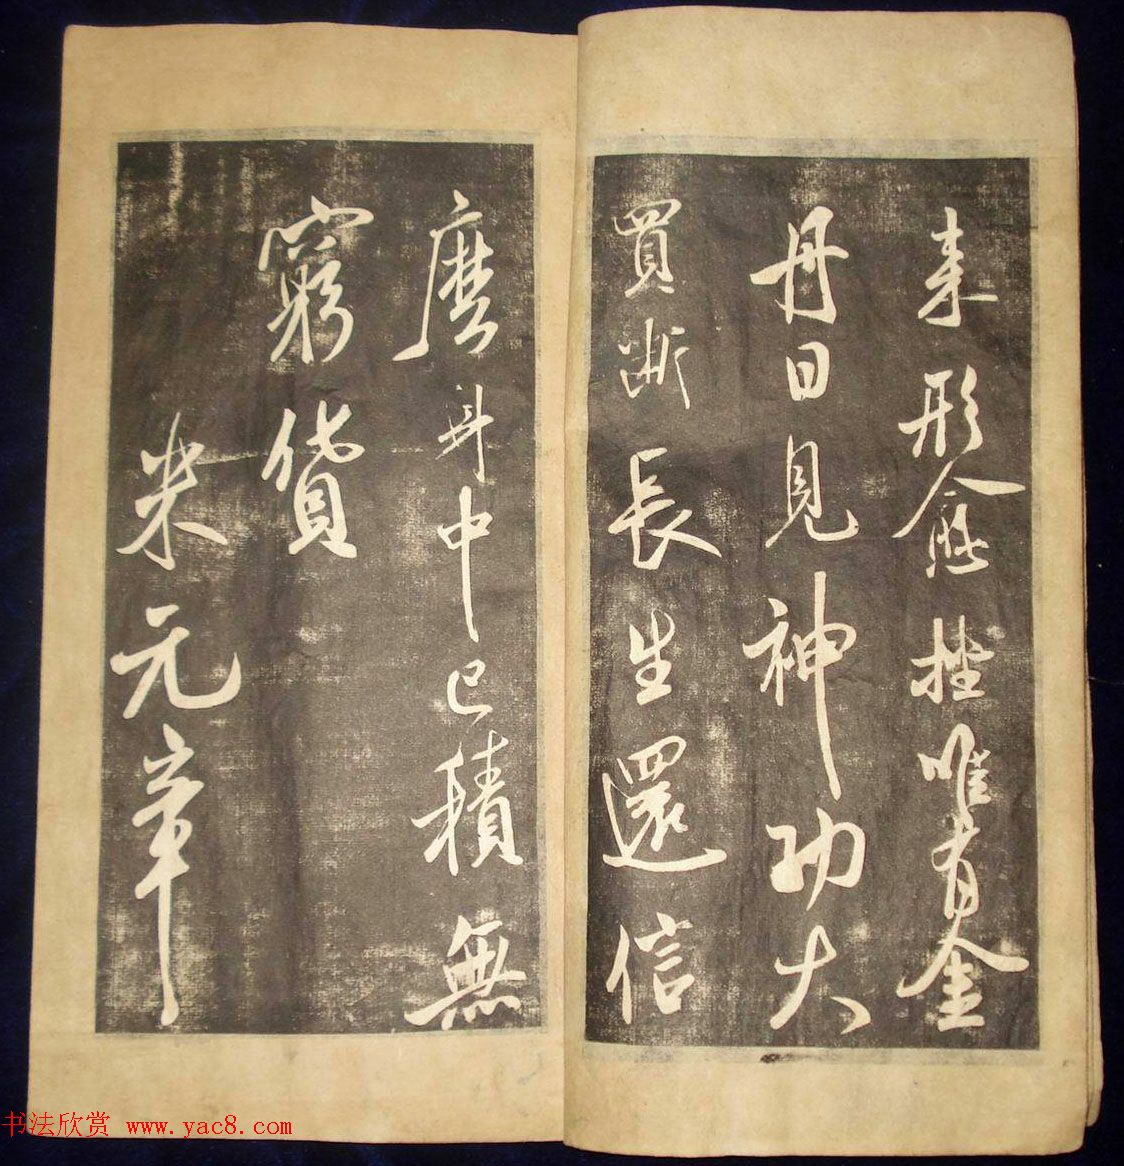 来形愈拙唯有金
丹日見神功大
買断長生還信
麿斗中已積無
窮貨
米元章
书法欣赏 www.yac8.com